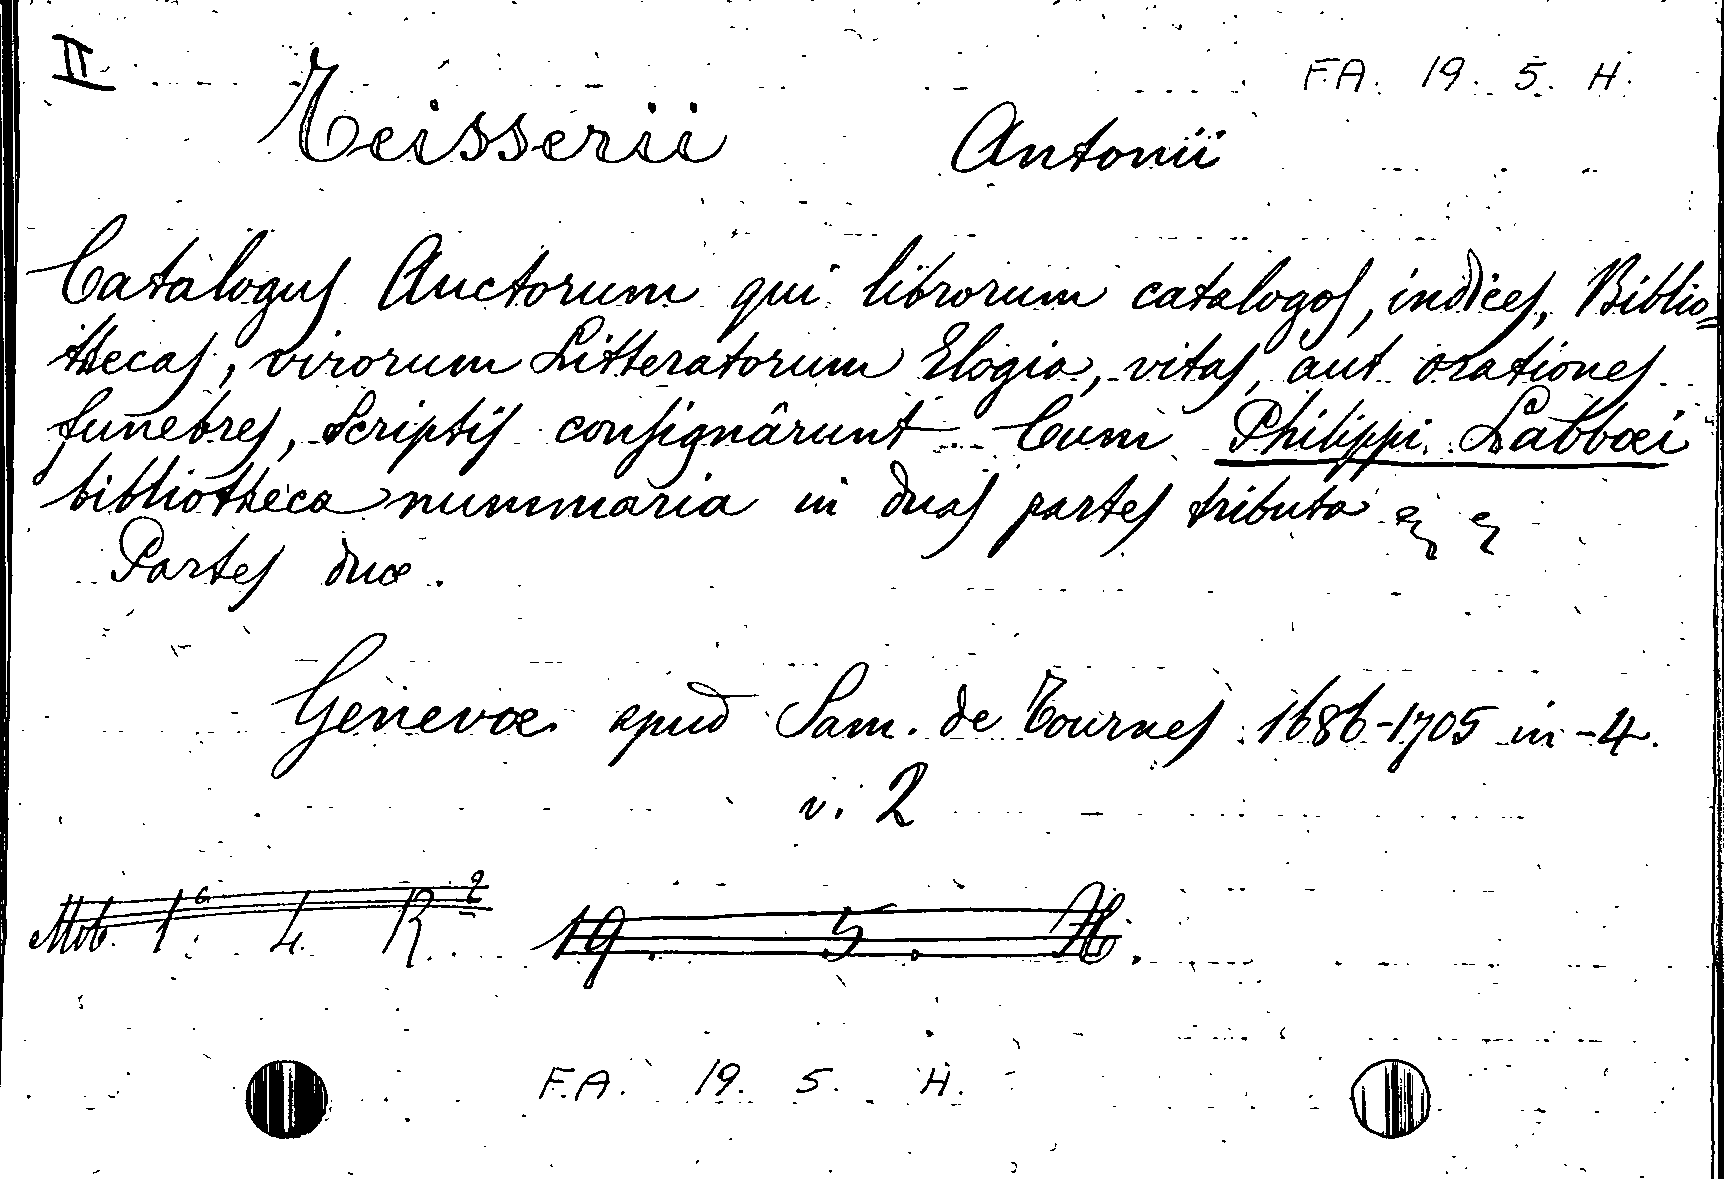 II
F.A. 19. 5. H.
Teisserii Antonii
Catalogus Auctorum qui librorum catalogos, indices, Biblio=
thecas, virorum Litteratorum Elogia, vitas, aut orationes
funebres, scriptis consignârunt Cum Philippi Labbæi
bibliotheca nummaria in duas partes tributa
Partes duæ.
Genevæ apud Sam. de Tournes 1686-1705 in-4.
v. 2
Mob. 1ª. 4. R.² 19. 5. H.
F.A. 19. 5. H.